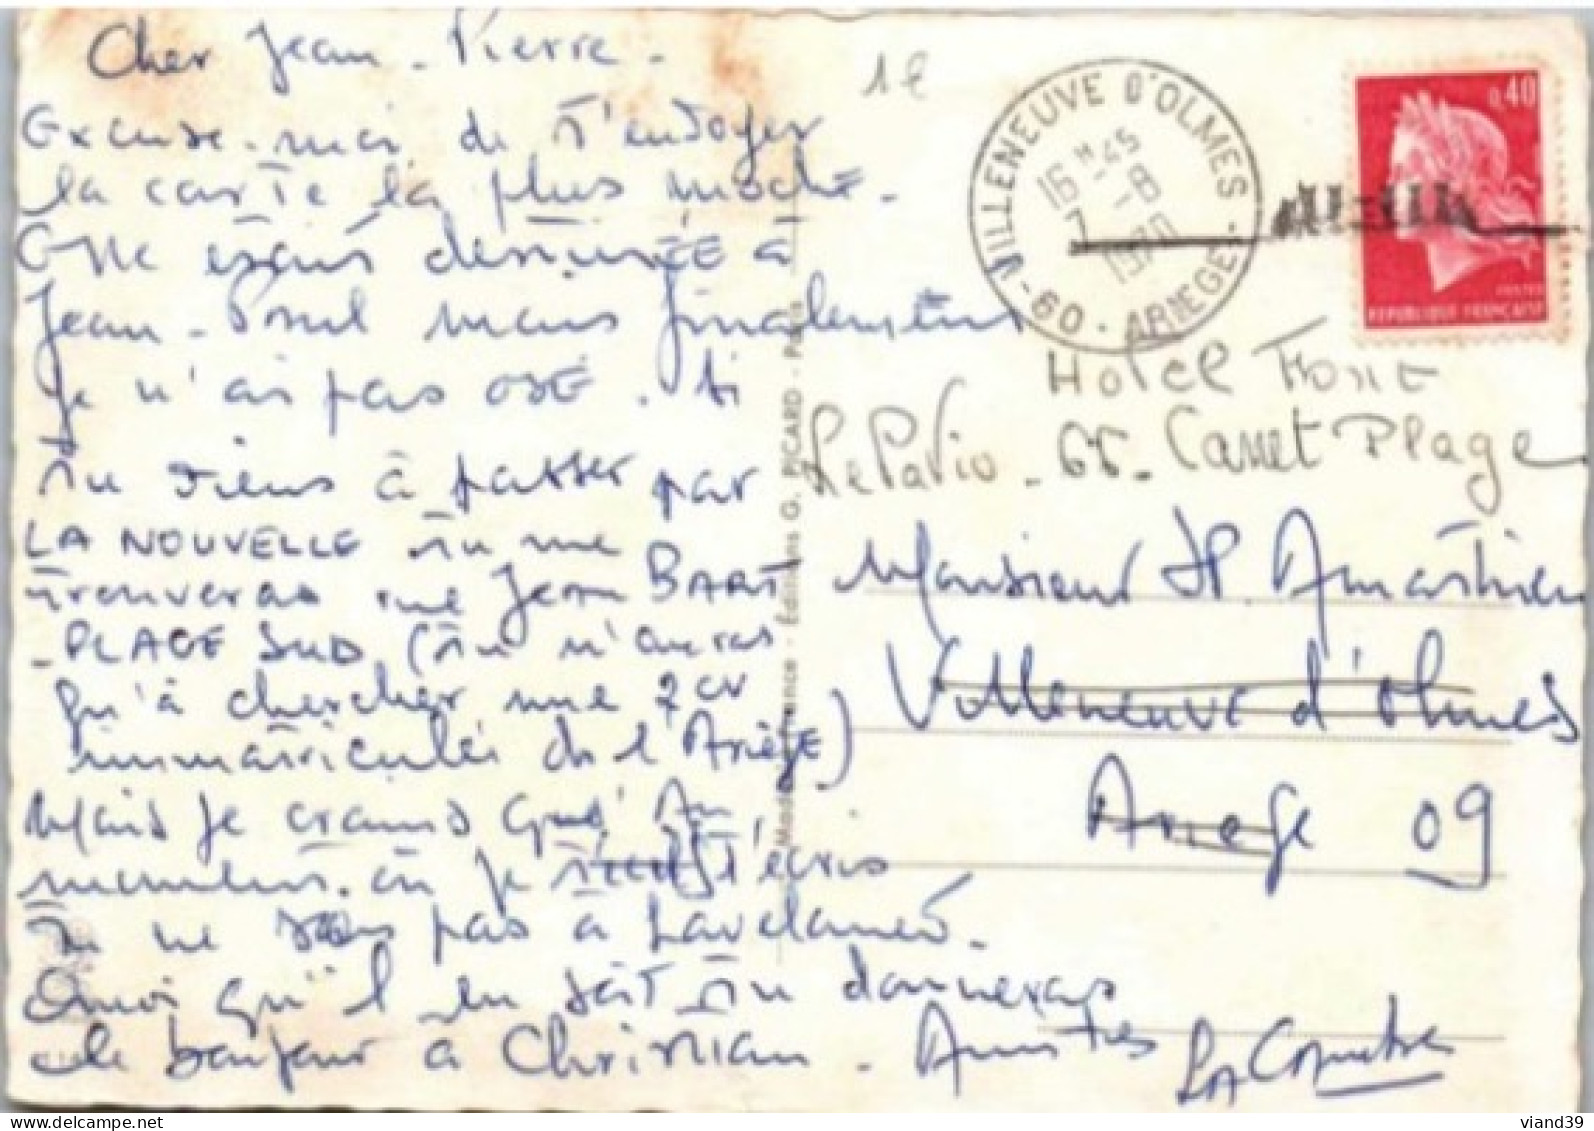 Cher Jean-Pierre -
Excuse-moi de t'envoyer
la carte la plus moche.
Elle était destinée à
Jean-Paul mais finalement
je n'ai pas osé. Si
tu viens à passer par
LA NOUVELLE tu me
trouveras rue Jean BART
- PLAGE SUD (tu n'auras
qu'à chercher une 2 cv
immatriculée de l'Ariège)
Mais je crains qu'au
moment où je t'écris
tu ne sois pas à Lavelanet.
Quoi qu'il en soit tu donneras
le bonjour à Christian. Amitiés
1€
VILLENEUVE D'OLMES
16 H 45
7 - 8
1970
- 09 - ARIEGE -
0,40
POSTES
REPUBLIQUE FRANCAISE
Hotel Font
Le Patio - 66 - Canet Plage
Monsieur JP.
Villeneuve d'Olmes
Ariege 09
Made in France - Éditions G. PICARD - Paris
viand39